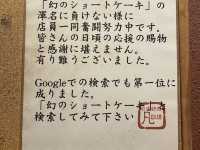 「幻のショートケーキ」の
渾名に負けない様に
店員一同奮闘努力中です。
皆さんの日頃の応援の賜物
と感謝に堪えません。
有り難うございました。
Googleでの検索でも第一位に
成りました。
「幻のショートケーキ」を
検索してみて下さい